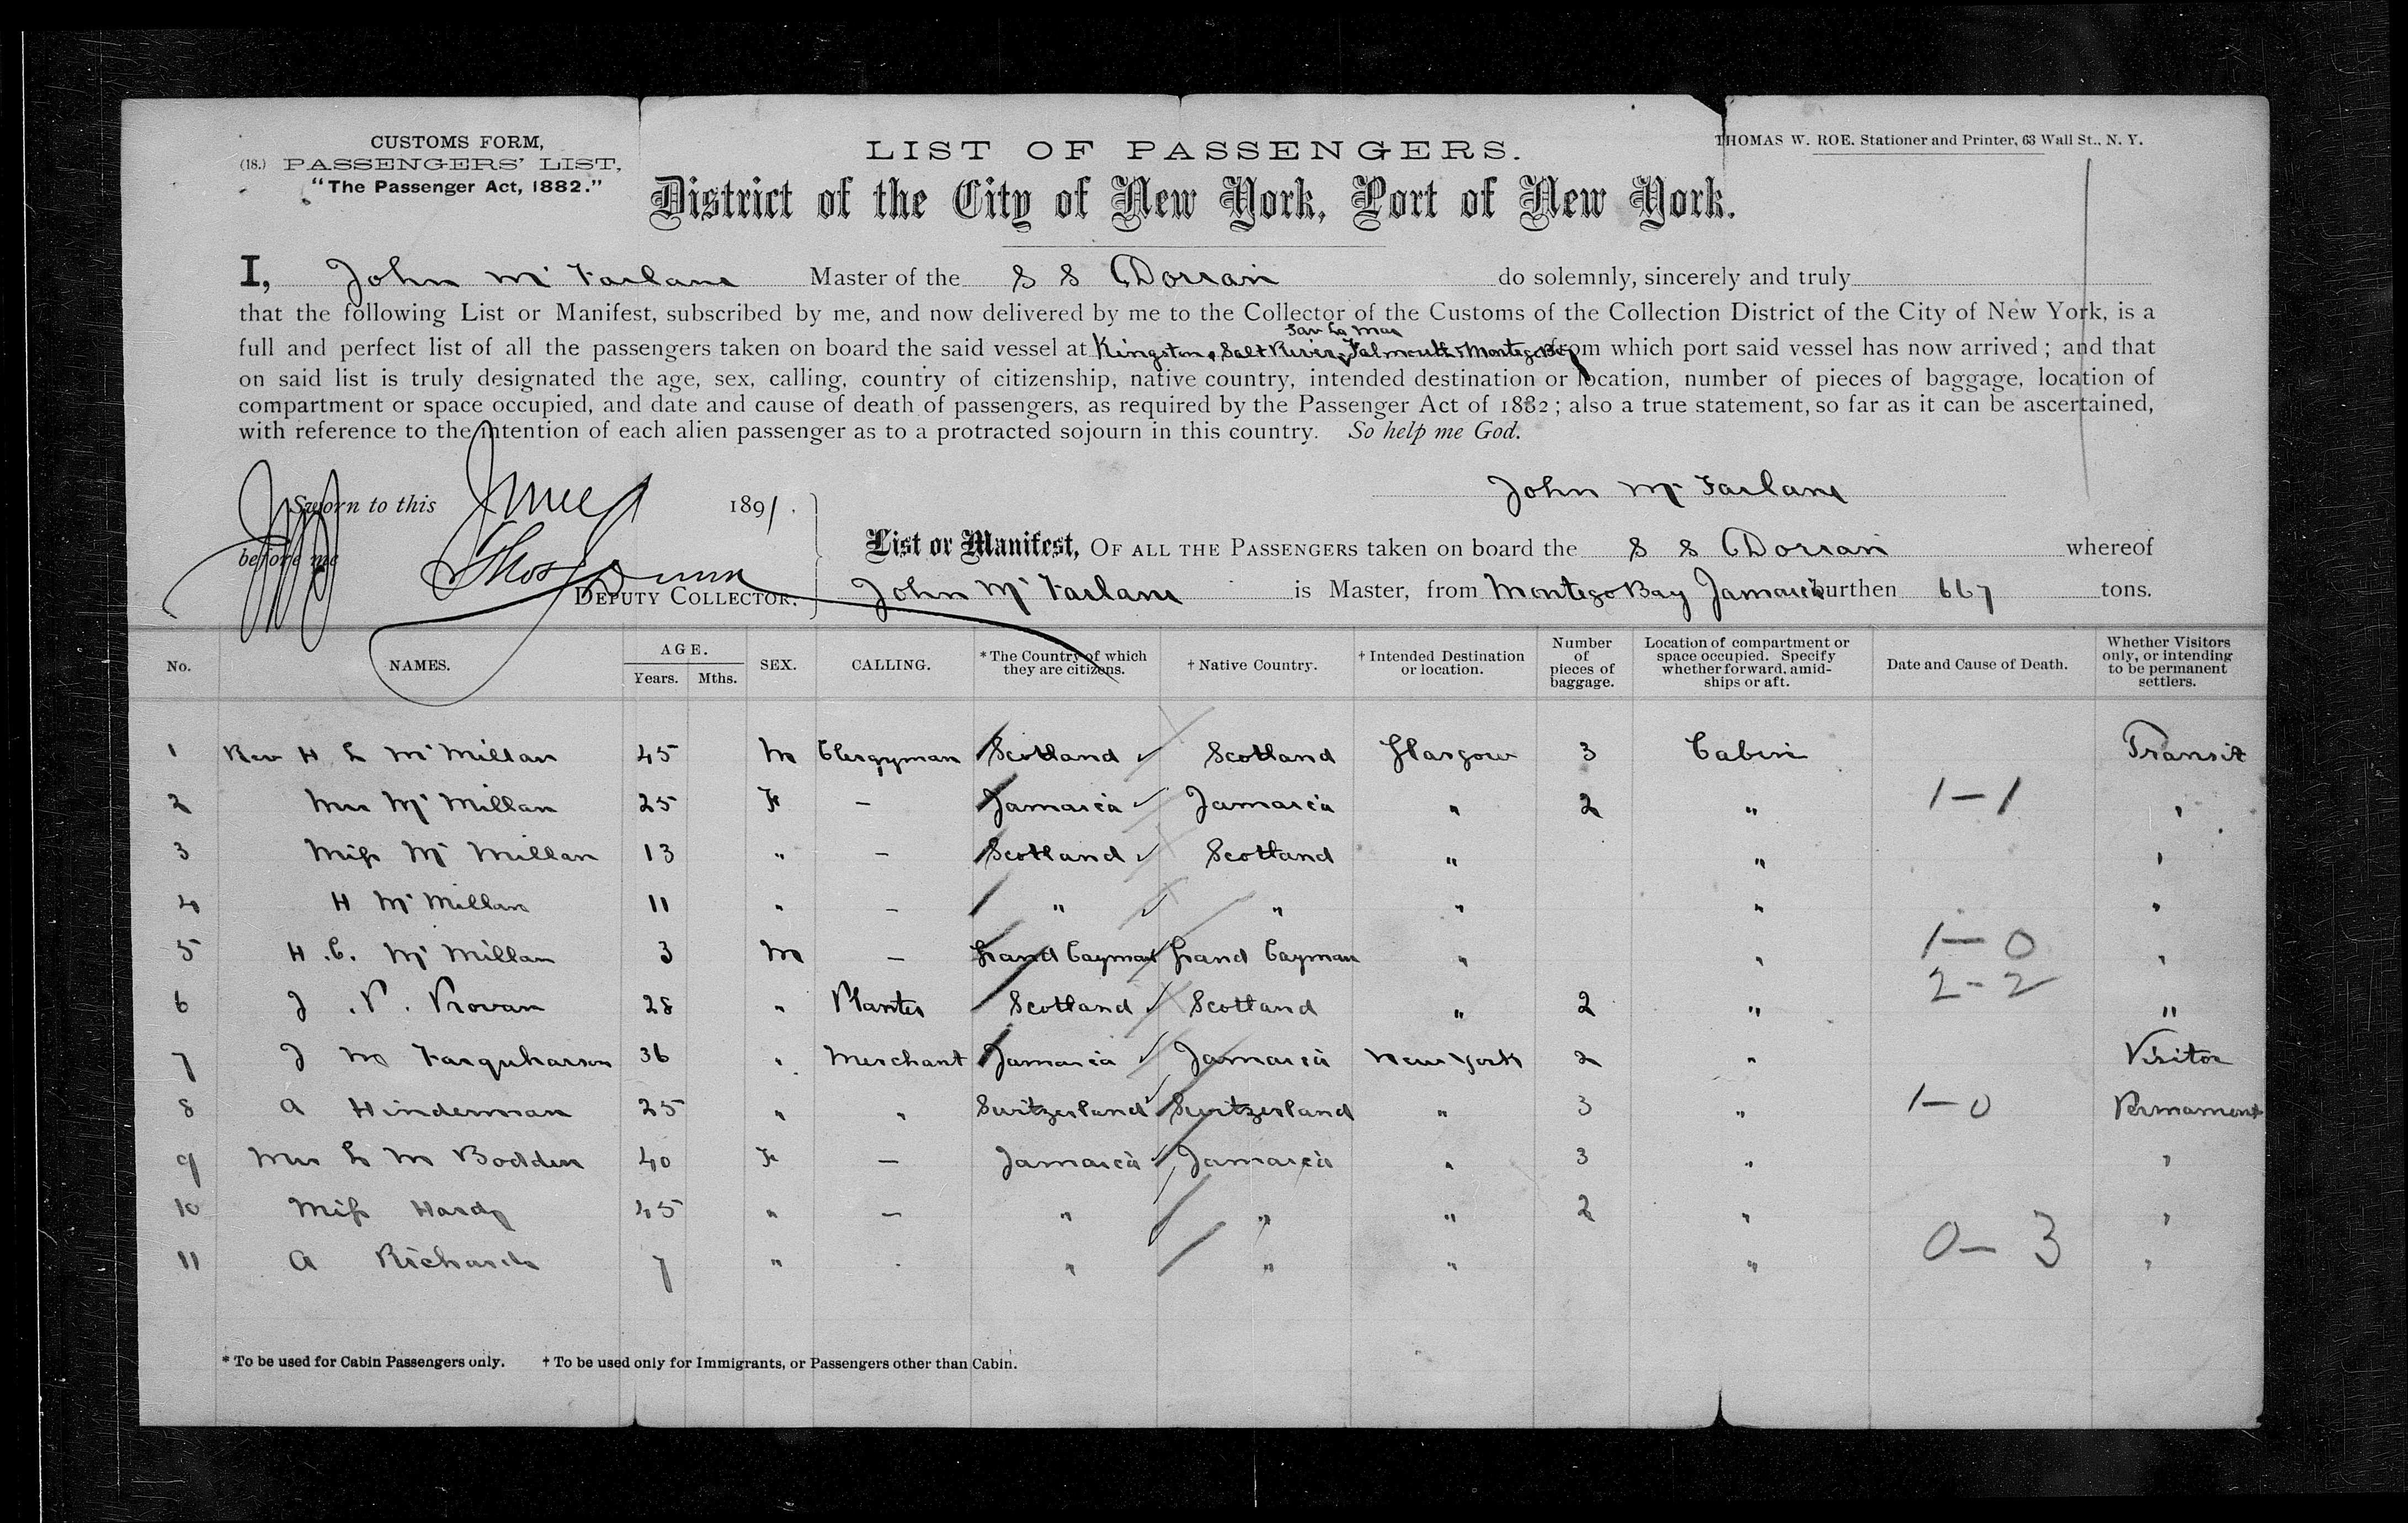 CUSTOMS FORM,
(18.) PASSENGERS' LIST,
"The Passenger Act, 1882."
LIST OF PASSENGERS.
THOMAS W. ROE. Stationer and Printer, 63 Wall St., N. Y.
District of the City of New York, Port of New York.
I, John McFarlane Master of the S S Dorran do solemnly, sincerely and truly
that the following List or Manifest, subscribed by me, and now delivered by me to the Collector of the Customs of the Collection District of the City of New York, is a
Sav La Mar
full and perfect list of all the passengers taken on board the said vessel at Kingston, Salt River, Falmouth, Montego Bay from which port said vessel has now arrived; and that
on said list is truly designated the age, sex, calling, country of citizenship, native country, intended destination or location, number of pieces of baggage, location of
compartment or space occupied, and date and cause of death of passengers, as required by the Passenger Act of 1882; also a true statement, so far as it can be ascertained,
with reference to the intention of each alien passenger as to a protracted sojourn in this country. So help me God.
John McFarlane
Sworn to this June 1 1891.
before me Thos Dunn
DEPUTY COLLECTOR.
List or Manifest, OF ALL THE PASSENGERS taken on board the S S Dorran whereof
John McFarlane is Master, from Montego Bay Jamaica burthen 667 tons.
No. NAMES. AGE. Years. Mths. SEX. CALLING. *The Country of which they are citizens. †Native Country. †Intended Destination or location. Number of pieces of baggage. Location of compartment or space occupied. Specify whether forward, amidships or aft. Date and Cause of Death. Whether Visitors only, or intending to be permanent settlers.
1 Rev H L McMillan 45 M Clergyman Scotland Scotland Glasgow 3 Cabin Transit
2 Mrs McMillan 25 F — Jamaica Jamaica " 2 " 1-1 "
3 Miss McMillan 13 " — Scotland Scotland " " "
4 H McMillan 11 " — " " " " "
5 H. C. McMillan 3 M — Grand Cayman Grand Cayman " " 1-0 "
6 J. P. Provan 28 " Planter Scotland Scotland " 2 " 2-2 "
7 J M Farquharson 36 " Merchant Jamaica Jamaica New York 2 " Visitor
8 A Hinderman 25 " " Switzerland Switzerland " 3 " 1-0 Permament
9 Mrs L M Bodden 40 F — Jamaica Jamaica " 3 " "
10 Miss Hardy 45 " — " " " 2 " "
11 A Richards 7 " . " " " " 0-3 "
* To be used for Cabin Passengers only. † To be used only for Immigrants, or Passengers other than Cabin.